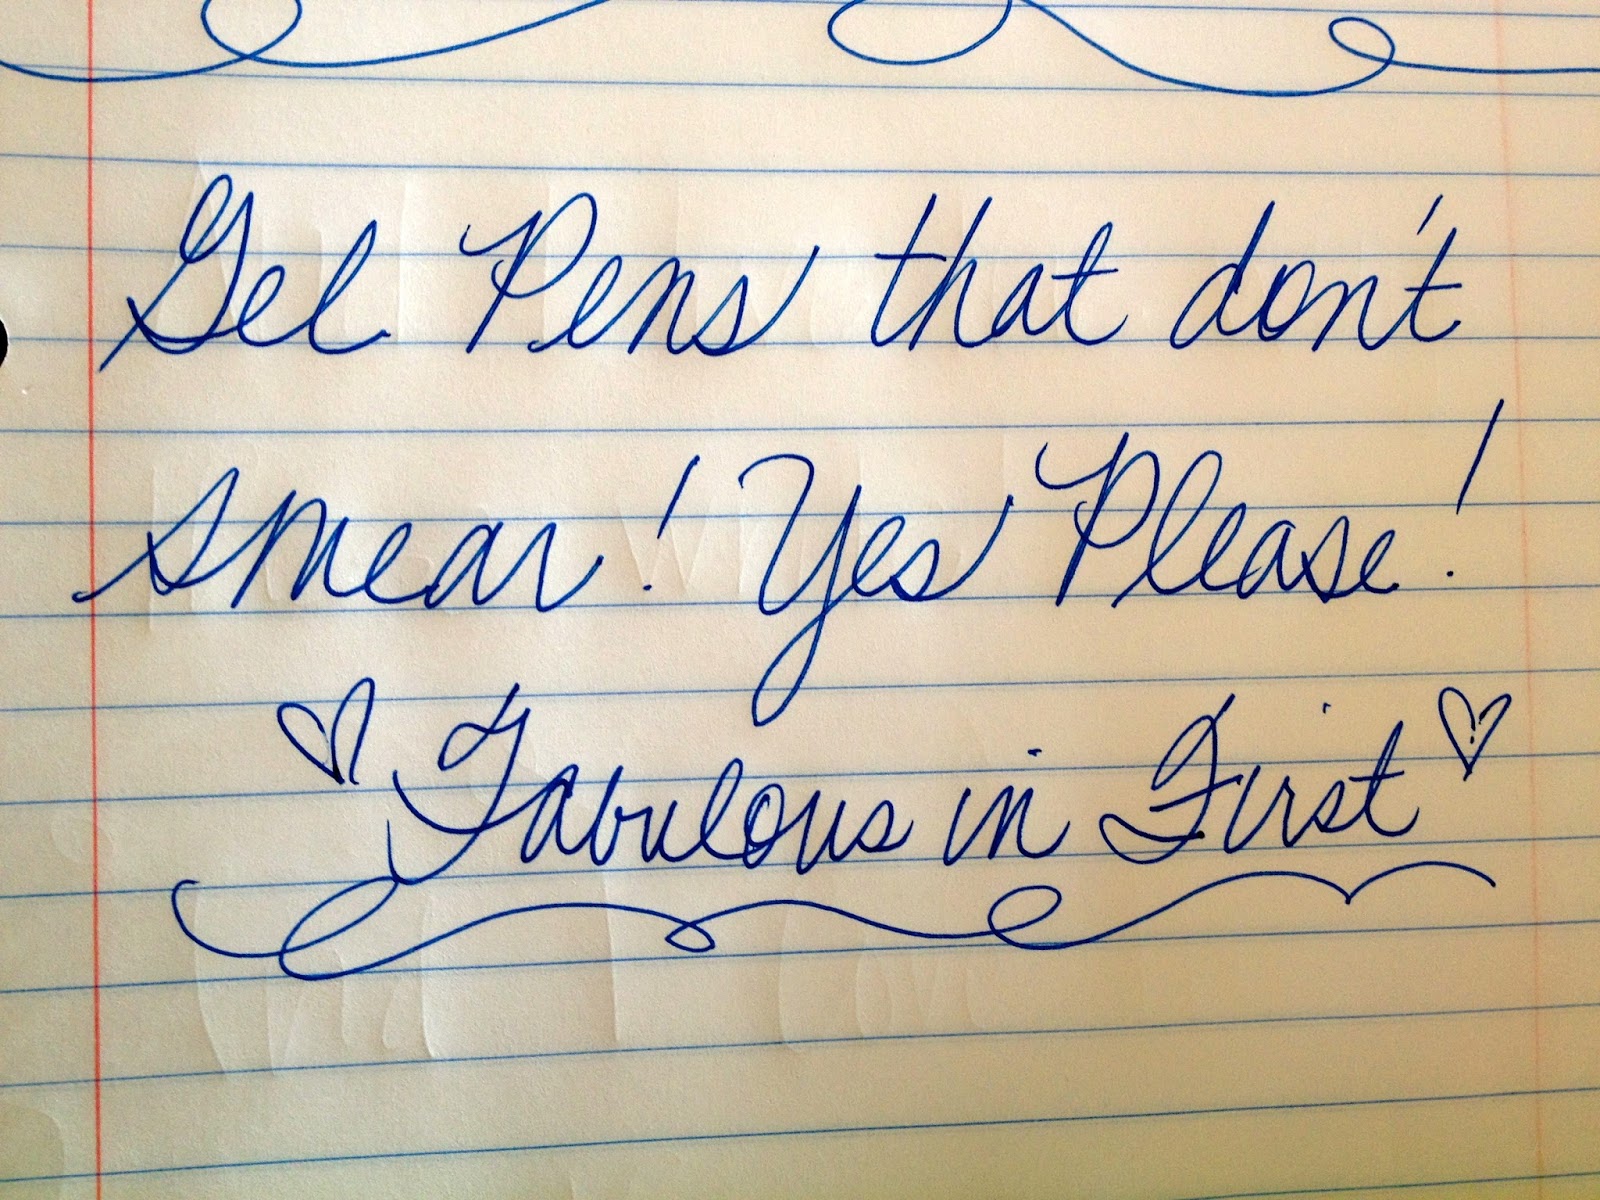 Gel Pens that don't
smear! Yes Please!
♡ Fabulous in First ♡